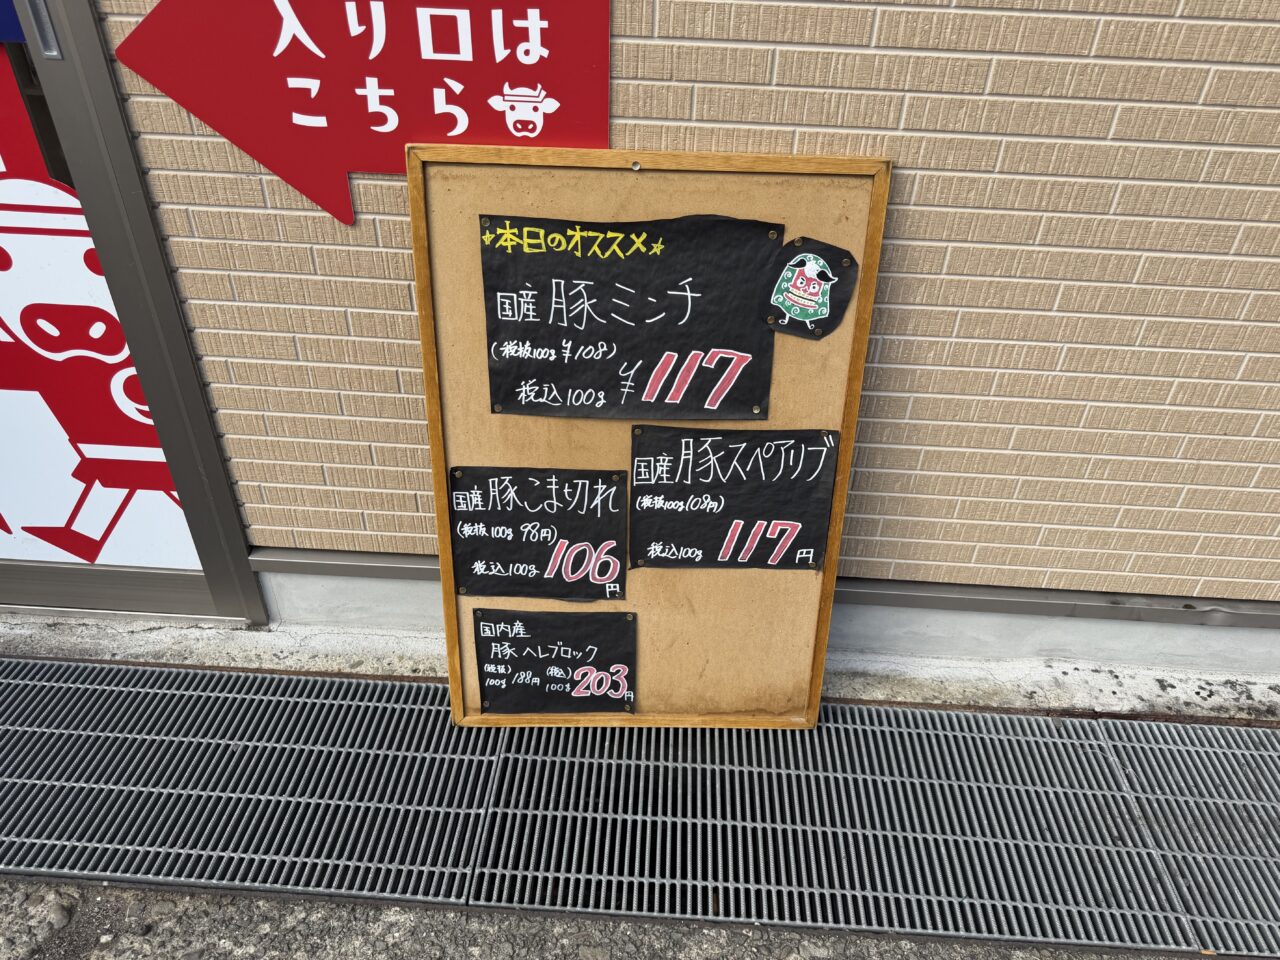 入り口は
こちら
本日のオススメ
国産 豚ミンチ
(税抜100g ¥108)
税込100g ¥117
国産 豚スペアリブ
(税抜100g 108円)
税込100g 117円
国産 豚こま切れ
(税抜100g 98円)
税込100g 106円
国内産
豚ヘレブロック
(税抜)100g 188円 (税込)100g 203円